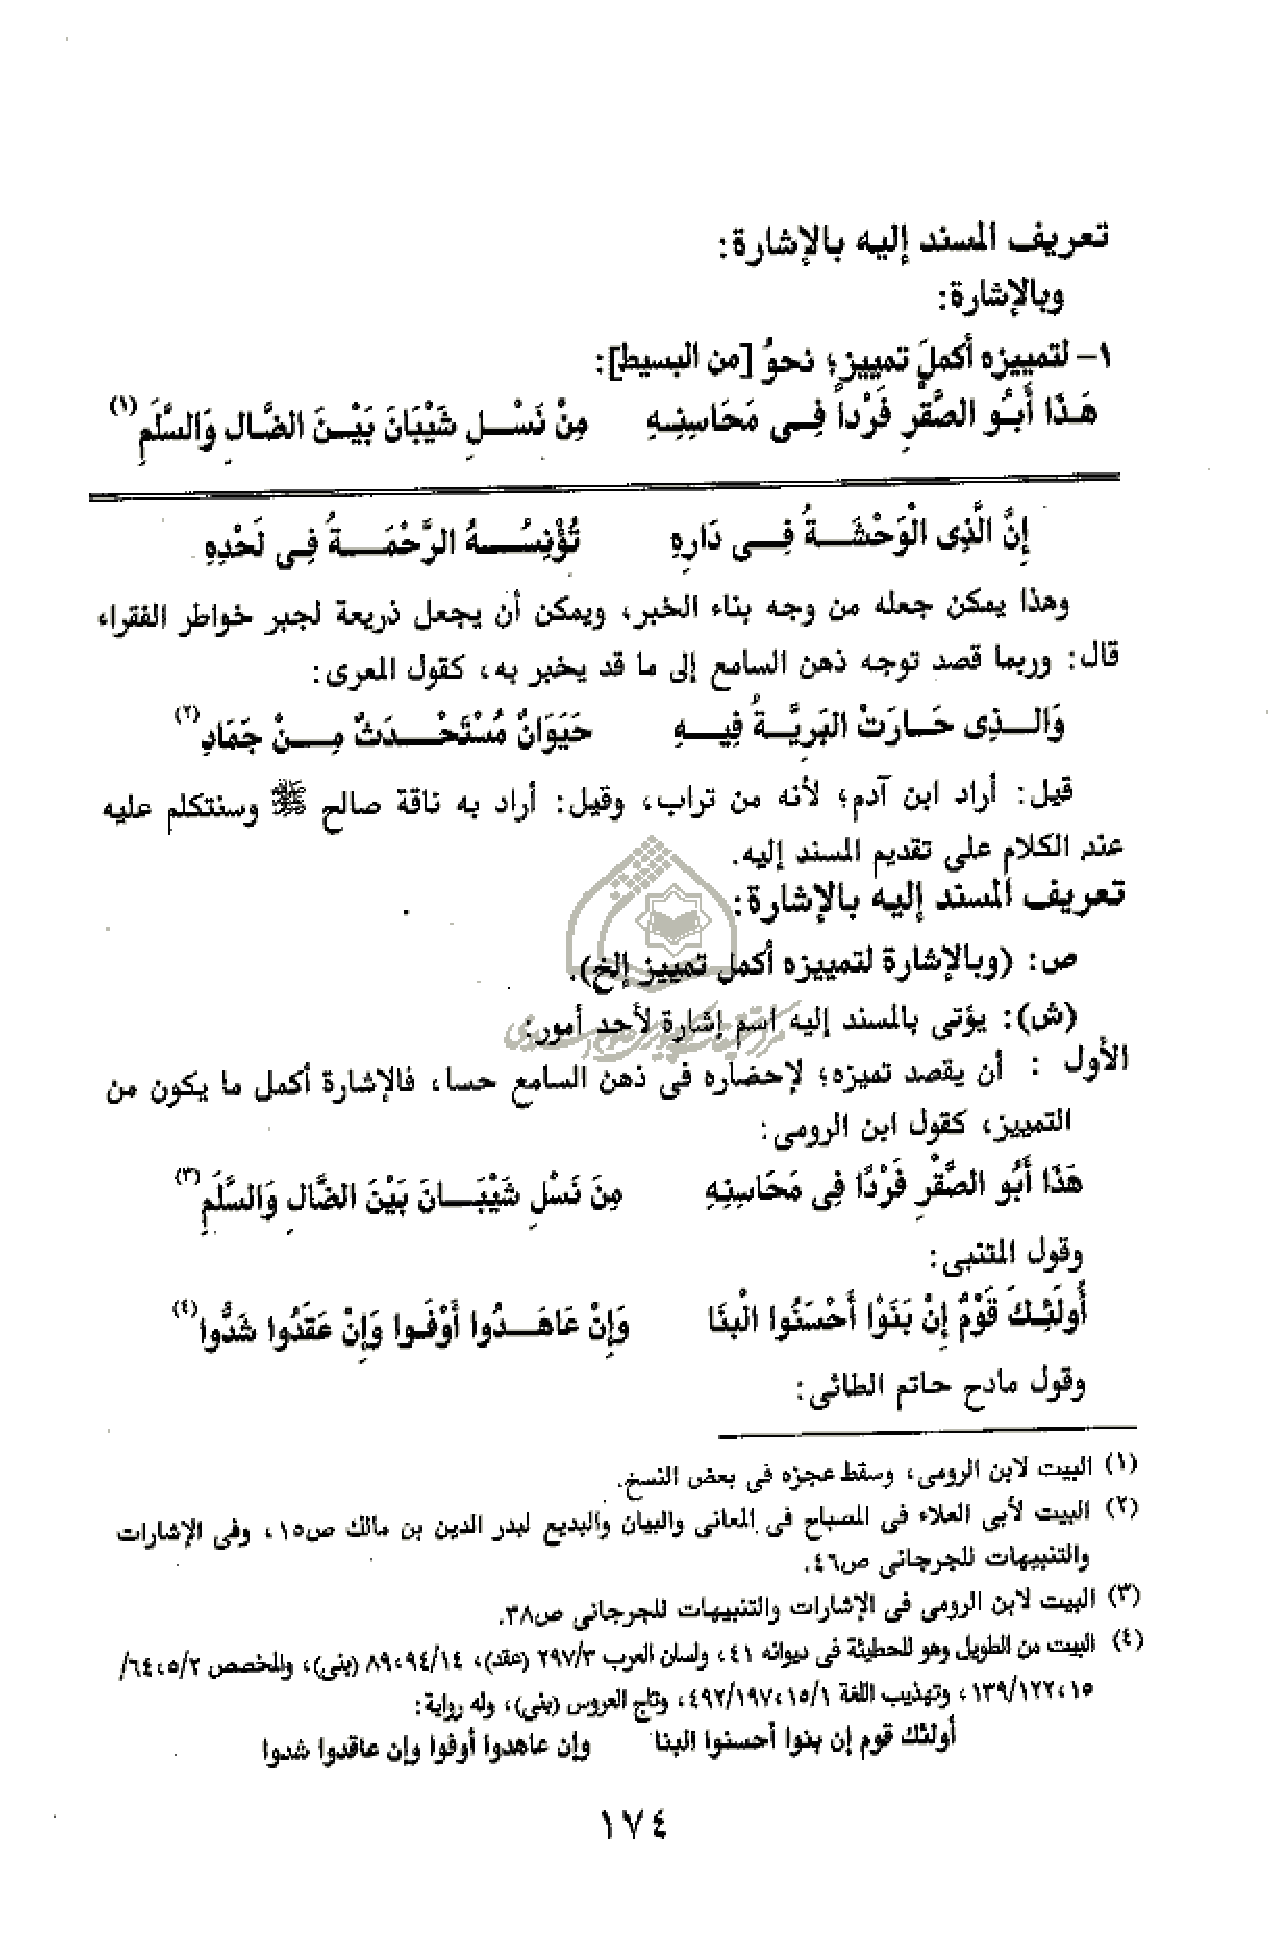 تعريف المسند إليه بالإشارة:
وبالإشارة:
١- لتمييزه أكملَ تمييز؛ نحوُ [من البسيط]:
هَـذَا أَبُـو الصَّقْرِ فَرْداً فِـى مَحَاسِنِـهِ مِنْ نَسْـلِ شَيْبَانَ بَيْـنَ الضَّـالِ وَالسَّلَمِ (١)
إِنَّ الَّذِى الْوَحْشَـةُ فِـى دَارِهِ تُؤْنِسُـهُ الرَّحْمَـةُ فِـى لَحْدِهِ
وهذا يمكن جعله من وجه بناء الخبر، ويمكن أن يجعل ذريعة لجبر خواطر الفقراء
قال: وربما قصد توجه ذهن السامع إلى ما قد يخبر به، كقول المعرى:
وَالـذِى حَـارَتْ البَرِيَّـةُ فِيـهِ حَيَوَانٌ مُسْتَحْـدَثٌ مِـنْ جَمَادِ (٢)
قيل: أراد ابن آدم؛ لأنه من تراب، وقيل: أراد به ناقة صالح ﷺ وسنتكلم عليه
عند الكلام على تقديم المسند إليه.
تعريف المسند إليه بالإشارة:
ص: (وبالإشارة لتمييزه أكمل تمييز إلخ).
(ش): يؤتى بالمسند إليه اسم إشارة لأحد أمور:
الأول : أن يقصد تميزه؛ لإحضاره فى ذهن السامع حسا، فالإشارة أكمل ما يكون من
التمييز، كقول ابن الرومى:
هَذَا أَبُو الصَّقْرِ فَرْدًا فِى مَحَاسِنِهِ مِنَ نَسْلِ شَيْبَـانَ بَيْنَ الضَّالِ وَالسَّلَمِ (٣)
وقول المتنبى:
أُولَئِـكَ قَوْمٌ إِنْ بَنَوْا أَحْسَنُوا الْبِنَا وَإِنْ عَاهَـدُوا أَوْفَـوا وَإِنْ عَقَدُوا شَدُّوا (٤)
وقول مادح حاتم الطائى:
(١) البيت لابن الرومى، وسقط عجزه فى بعض النسخ.
(٢) البيت لأبى العلاء فى المصباح فى المعانى والبيان والبديع لبدر الدين بن مالك ص١٥، وفى الإشارات
والتنبيهات للجرجانى ص٤٦.
(٣) البيت لابن الرومى فى الإشارات والتنبيهات للجرجانى ص٣٨.
(٤) البيت من الطويل وهو للحطيئة فى ديوانه ٤١، ولسان العرب ٢٩٧/٣ (عقد)، ٨٩،٩٤/١٤ (بنى)، والمخصص ٦٤،٥/٢/
١٣٩/١٢٢،١٥، وتهذيب اللغة ٤٩٢/١٩٧،١٥/١، وتاج العروس (بنى)، وله رواية:
أولئك قوم إن بنوا أحسنوا البنا وإن عاهدوا أوفوا وإن عاقدوا شدوا
١٧٤